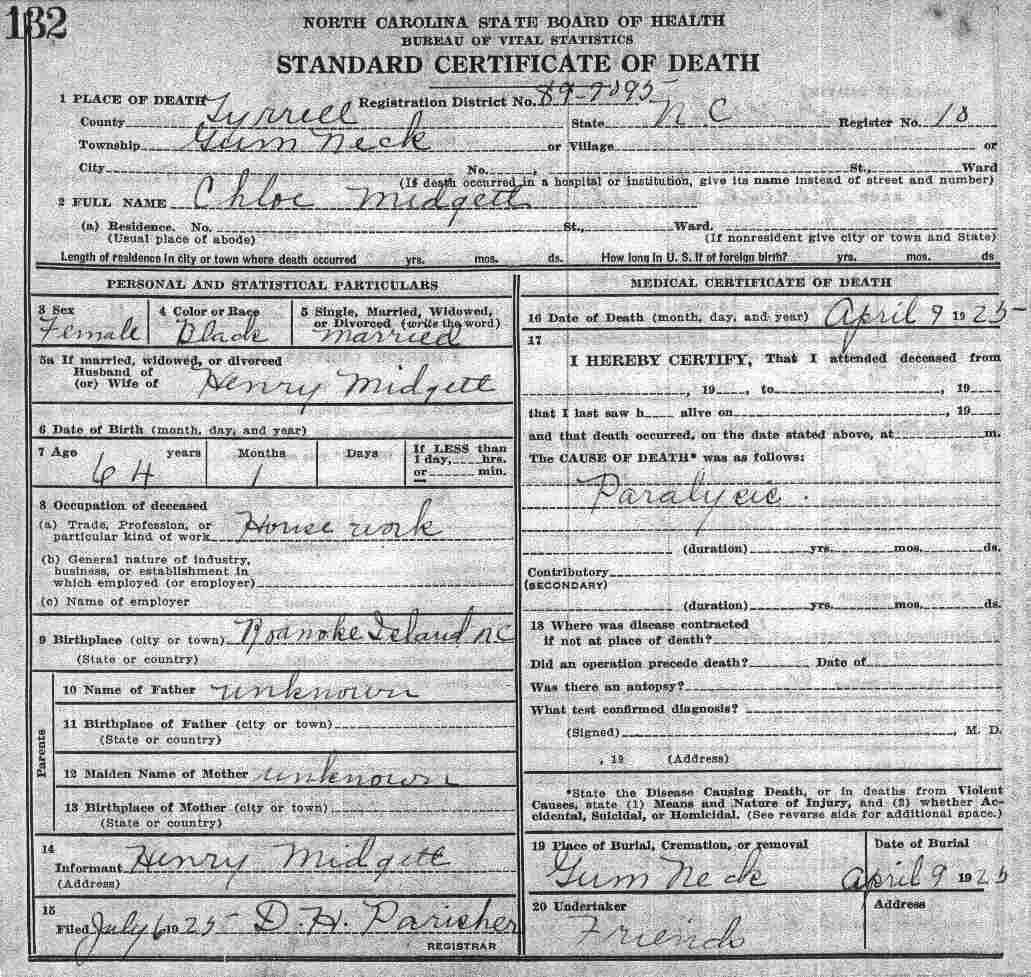 132
NORTH CAROLINA STATE BOARD OF HEALTH
BUREAU OF VITAL STATISTICS
STANDARD CERTIFICATE OF DEATH
1 PLACE OF DEATH Registration District No. 89-7095
County Tyrrell State N.C Register No. 18
Township Gum Neck or Village or
City No. , St., Ward
(If death occurred in a hospital or institution, give its name instead of street and number)
2 FULL NAME Chloe Midgett
(a) Residence. No. St., Ward.
(Usual place of abode) (If nonresident give city or town and State)
Length of residence in city or town where death occurred yrs. mos. ds. How long in U. S. if of foreign birth? yrs. mos. ds
PERSONAL AND STATISTICAL PARTICULARS
3 Sex 4 Color or Race 5 Single, Married, Widowed,
or Divorced (write the word)
Female Black Married
5a If married, widowed, or divorced
Husband of
(or) Wife of Henry Midgett
6 Date of Birth (month, day, and year)
7 Age years Months Days If LESS than
1 day, hrs.
or min.
64 1
8 Occupation of deceased
(a) Trade, Profession, or
particular kind of work House work
(b) General nature of industry,
business, or establishment in
which employed (or employer)
(c) Name of employer
9 Birthplace (city or town) Roanoke Island NC
(State or country)
Parents
10 Name of Father unknown
11 Birthplace of Father (city or town)
(State or country)
12 Maiden Name of Mother unknown
13 Birthplace of Mother (city or town)
(State or country)
14
Informant Henry Midgett
(Address)
15
Filed July 6 1925 D. H. Parisher
REGISTRAR
MEDICAL CERTIFICATE OF DEATH
16 Date of Death (month, day, and year) April 9 1925
17
I HEREBY CERTIFY, That I attended deceased from
, 19 , to , 19
that I last saw h alive on , 19
and that death occurred, on the date stated above, at m.
The CAUSE OF DEATH* was as follows:
Paralycic .
(duration) yrs. mos. ds.
Contributory
(SECONDARY)
(duration) yrs. mos. ds.
18 Where was disease contracted
if not at place of death?
Did an operation precede death? Date of
Was there an autopsy?
What test confirmed diagnosis?
(Signed) , M. D.
, 19 (Address)
*State the Disease Causing Death, or in deaths from Violent
Causes, state (1) Means and Nature of Injury, and (2) whether Ac-
cidental, Suicidal, or Homicidal. (See reverse side for additional space.)
19 Place of Burial, Cremation, or removal Date of Burial
Gum Neck April 9 1925
20 Undertaker Address
Friends